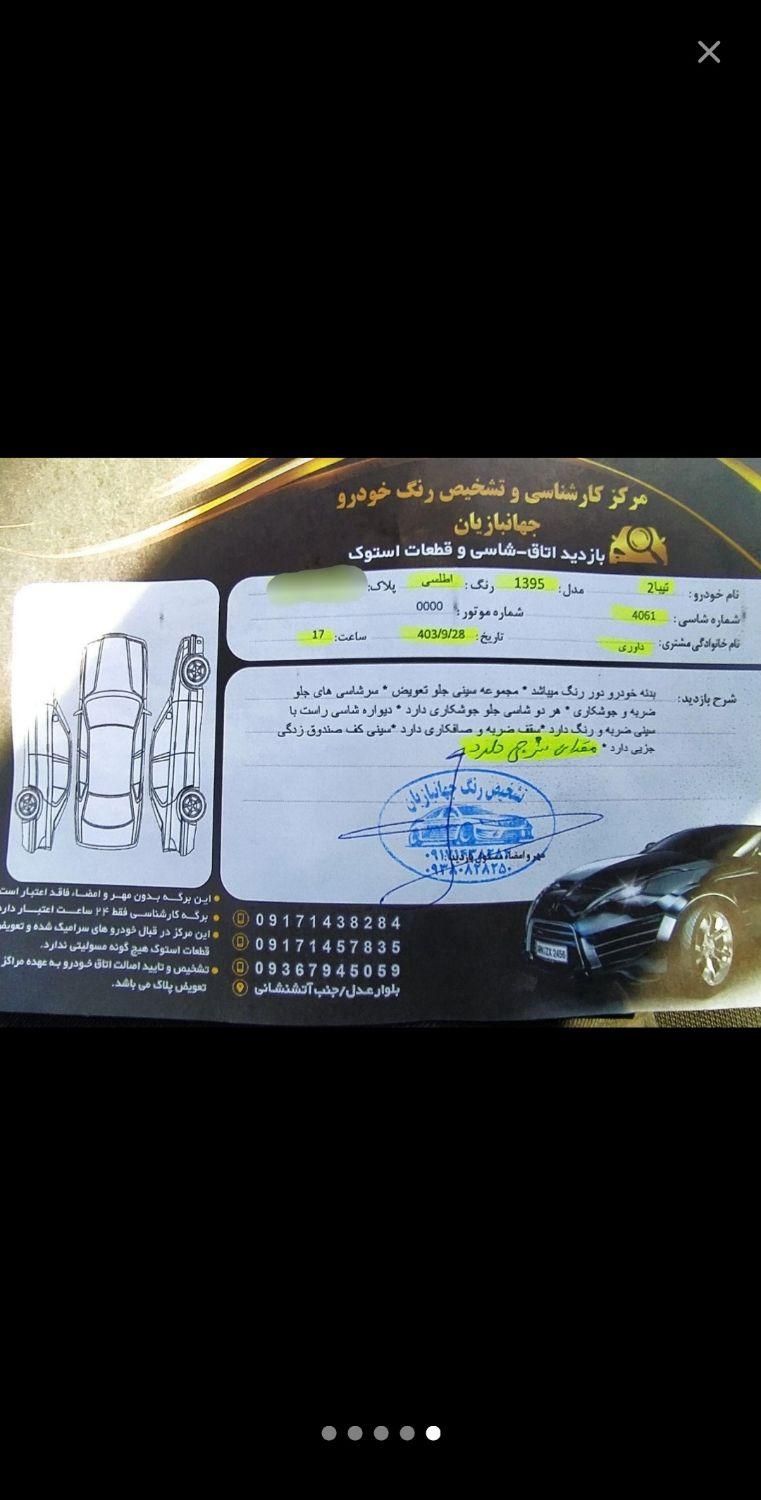 مرکز کارشناسی و تشخیص رنگ خودرو
جهانبازیان
بازدید اتاق-شاسی و قطعات استوک
نام خودرو: تیبا2 مدل: 1395 رنگ: اطلسی پلاک:
شماره شاسی: 4061 شماره موتور: 0000
نام خانوادگی مشتری: داوری تاریخ: 403/9/28 ساعت: 17
شرح بازدید: بدنه خودرو دور رنگ میباشد * مجموعه سینی جلو تعویض * سرشاسی های جلو
ضربه و جوشکاری * هر دو شاسی جلو جوشکاری دارد * دیواره شاسی راست با
سینی ضربه و رنگ دارد *سقف ضربه و صافکاری دارد *سینی کف صندوق زدگی
جزیی دارد *
تشخیص رنگ جهانبازیان
مهر و امضاء مسئول بازدید:
این برگه بدون مهر و امضاء فاقد اعتبار است
برگه کارشناسی فقط ۲۴ ساعت اعتبار دارد
این مرکز در قبال خودرو های سرامیک شده و تعویض
قطعات استوک هیچ گونه مسولیتی ندارد.
تشخیص و تایید اصالت اتاق خودرو به عهده مراکز
تعویض پلاک می باشد.
09171438284
09171457835
09367945059
بلوار عدل/جنب آتشنشانی